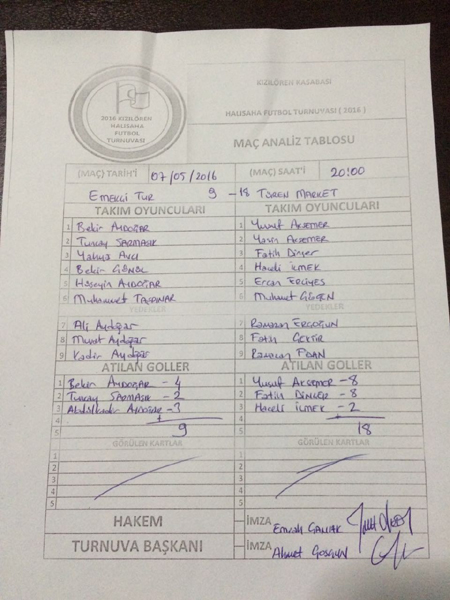 KIZILÖREN KASABASI
2016 KIZILÖREN
HALISAHA
FUTBOL
TURNUVASI
HALISAHA FUTBOL TURNUYASI ( 2016 )
MAÇ ANALİZ TABLOSU
(MAÇ) TARİH'İ 07/05/2016 (MAÇ) SAAT'İ 20:00
Emekli Tur 9 - 18 Tören Market
TAKIM OYUNCULARI TAKIM OYUNCULARI
1 Bekir Aydoğar 1 Yusuf Aksemer
2 Tuncay Sarmaşık 2 Yasin Aksemer
3 Yahya Avcı 3 Fatih Dinçer
4 Bekir Gönül 4 Haceli İlmek
5 Hüseyin Aydoğar 5 Ercan Erciyes
6 Muhammet 6 Mehmet
YEDEKLER YEDEKLER
7 Ali Aydoğar 7 Ramazan Ergoğun
8 Murat Aydoğar 8 Fatih
9 Kadir Aydoğar 9 Ramazan
ATILAN GOLLER ATILAN GOLLER
1 Bekir Aydoğar - 4 1 Yusuf Aksemer - 8
2 Tuncay Sarmaşık - 2 2 Fatih Dinçer - 8
3 Abdulkadir Aydoğar - 3 3 Haceli İlmek - 2
4 + 4
5 9 5 18
GÖRÜLEN KARTLAR GÖRÜLEN KARTLAR
1 1
2 2
3 3
4 4
5 5
HAKEM İMZA Emrah
TURNUVA BAŞKANI İMZA Ahmet